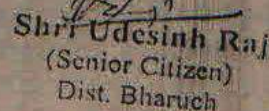 Shri Udesinh Raj
(Senior Citizen)
Dist. Bharuch